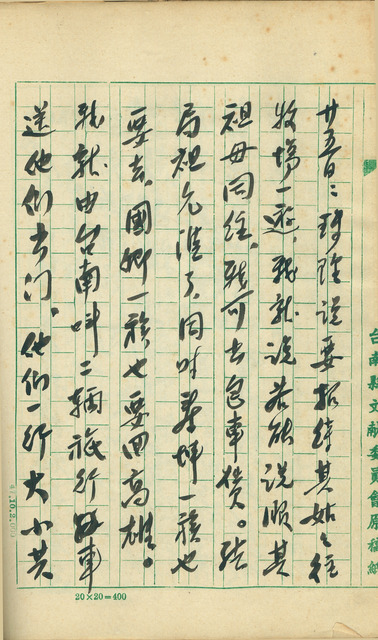 廿五日：珠玲說要招待其姑々往
牧場一遊、我就說若能說服其
祖母同往、我可出包車費。結
局祖允准了、同時華坤一族也
要去、國卿一族也要回高雄。
我就由台南叫二輛旅行車
送他们出门。他们一行大小共
台南縣文献委員會原稿紙
20×20=400